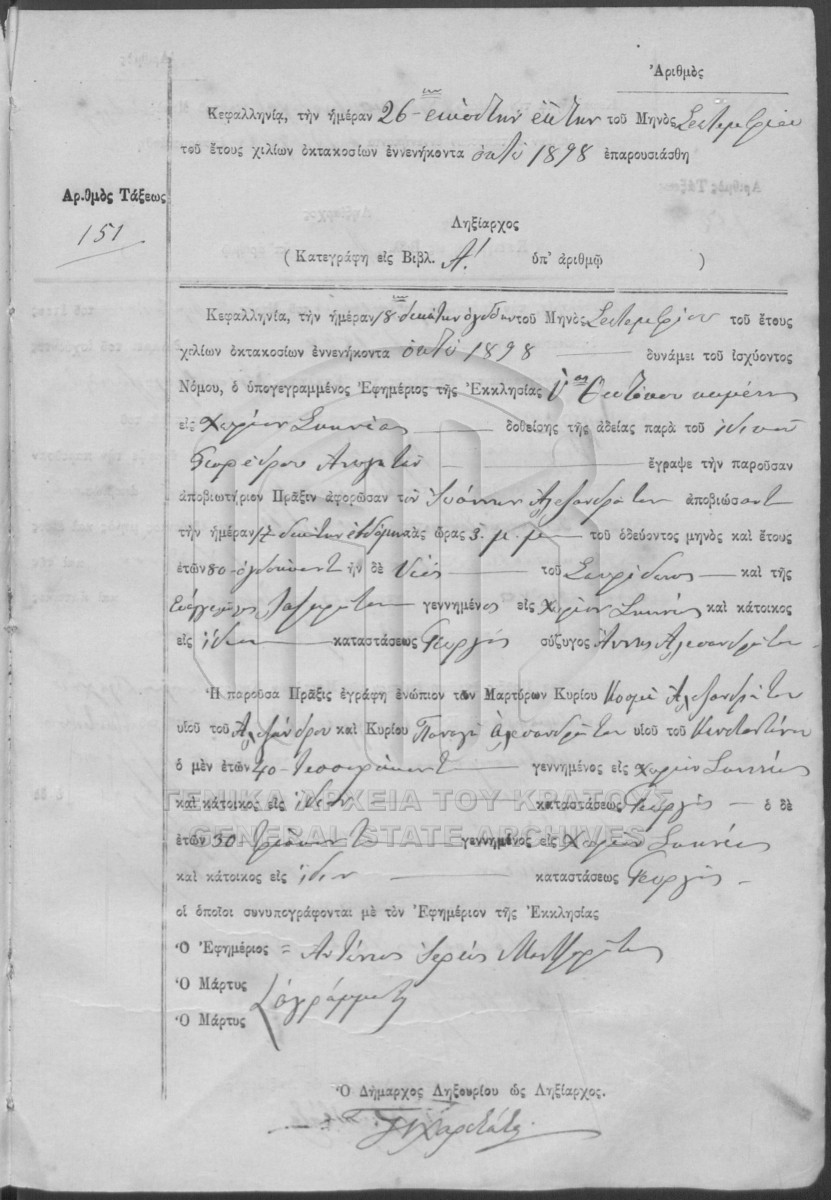 Ἀριθμὸς
Κεφαλληνίᾳ, τὴν ἡμέραν 26 - εἰκοστὴν ἕκτην τοῦ Μηνὸς Σεπτεμβρίου
τοῦ ἔτους χιλίων ὀκτακοσίων ἐννενήκοντα ὀκτὼ 1898 ἐπαρουσιάσθη
Ἀριθμὸς Τάξεως
151
Ληξίαρχος
( Κατεγράφη εἰς Βιβλ. Α! ὑπ' ἀριθμῷ )
Κεφαλληνίᾳ, τὴν ἡμέραν 18 δεκάτην ὀγδόην τοῦ Μηνὸς Σεπτεμβρίου τοῦ ἔτους
χιλίων ὀκτακοσίων ἐννενήκοντα ὀκτὼ 1898 δυνάμει τοῦ ἰσχύοντος
Νόμου, ὁ ὑπογεγραμμένος Ἐφημέριος τῆς Ἐκκλησίας Θεοτόκου κειμένης
εἰς Χωρίον δοθείσης τῆς ἀδείας παρὰ τοῦ
ἔγραψε τὴν παροῦσαν
ἀποβιωτήριον Πρᾶξιν ἀφορῶσαν τὸν Ἰωάννην Ἀλεξανδράτον ἀποβιώσαντ
τὴν ἡμέραν 17 δεκάτην ἑβδόμην τὰς ὥρας 3. μ. μ. τοῦ ὁδεύοντος μηνὸς καὶ ἔτους
ἐτῶν 80 - ὀγδοήκοντ ἦν δὲ υἱὸς τοῦ Σπυρίδωνος καὶ τῆς
γεννημένος εἰς Χωρίον καὶ κάτοικος
εἰς ἴδιον καταστάσεως Γεωργὸς σύζυγος Ἄννης Ἀλεξανδράτου
Ἡ παροῦσα Πρᾶξις ἐγράφη ἐνώπιον τῶν Μαρτύρων Κυρίου Κοσμᾶ Ἀλεξανδράτου
υἱοῦ τοῦ Ἀλεξάνδρου καὶ Κυρίου Παναγῆ Ἀλεξανδράτου υἱοῦ τοῦ Κωνσταντίνου
ὁ μὲν ἐτῶν 40 - τεσσαράκοντ γεννημένος εἰς χωρίον
καὶ κάτοικος εἰς ἴδιον καταστάσεως Γεωργὸς - ὁ δὲ
ΓΕΝΙΚΑ ΑΡΧΕΙΑ ΤΟΥ ΚΡΑΤΟΥΣ
GENERAL STATE ARCHIVES
ἐτῶν 30 τριάκοντ γεννημένος εἰς χωρίον
καὶ κάτοικος εἰς ἴδιον καταστάσεως Γεωργὸς -
οἱ ὁποῖοι συνυπογράφονται μὲ τὸν Ἐφημέριον τῆς Ἐκκλησίας
Ὁ Ἐφημέριος = Ἀντώνιος Ἱερεὺς
Ὁ Μάρτυς
ἀγράμματοι
Ὁ Μάρτυς
Ὁ Δήμαρχος Ληξουρίου ὡς Ληξίαρχος.